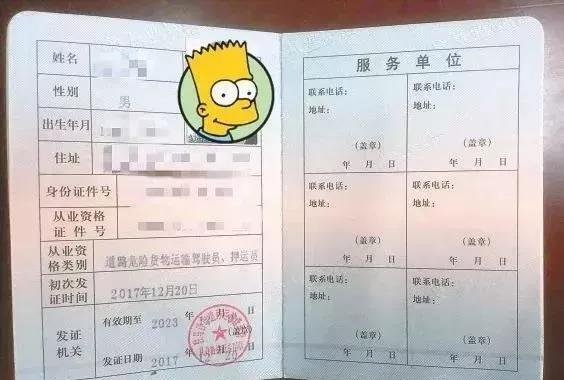 姓名
性别
男
出生年月
住址
身份证件号
从业资格
证件号
从业资
格类别
道路危险货物运输驾驶员、押运员
初次发
证时间
2017年12月20日
发证
机关
有效期至 2023 年 月 日
(盖章)
发证日期 2017
服务单位
联系电话:
地址:
(盖章)
年 月 日
联系电话:
地址:
(盖章)
年 月 日
联系电话:
地址:
(盖章)
年 月 日
联系电话:
地址:
(盖章)
年 月 日
联系电话:
地址:
(盖章)
年 月 日
联系电话:
地址:
(盖章)
年 月 日